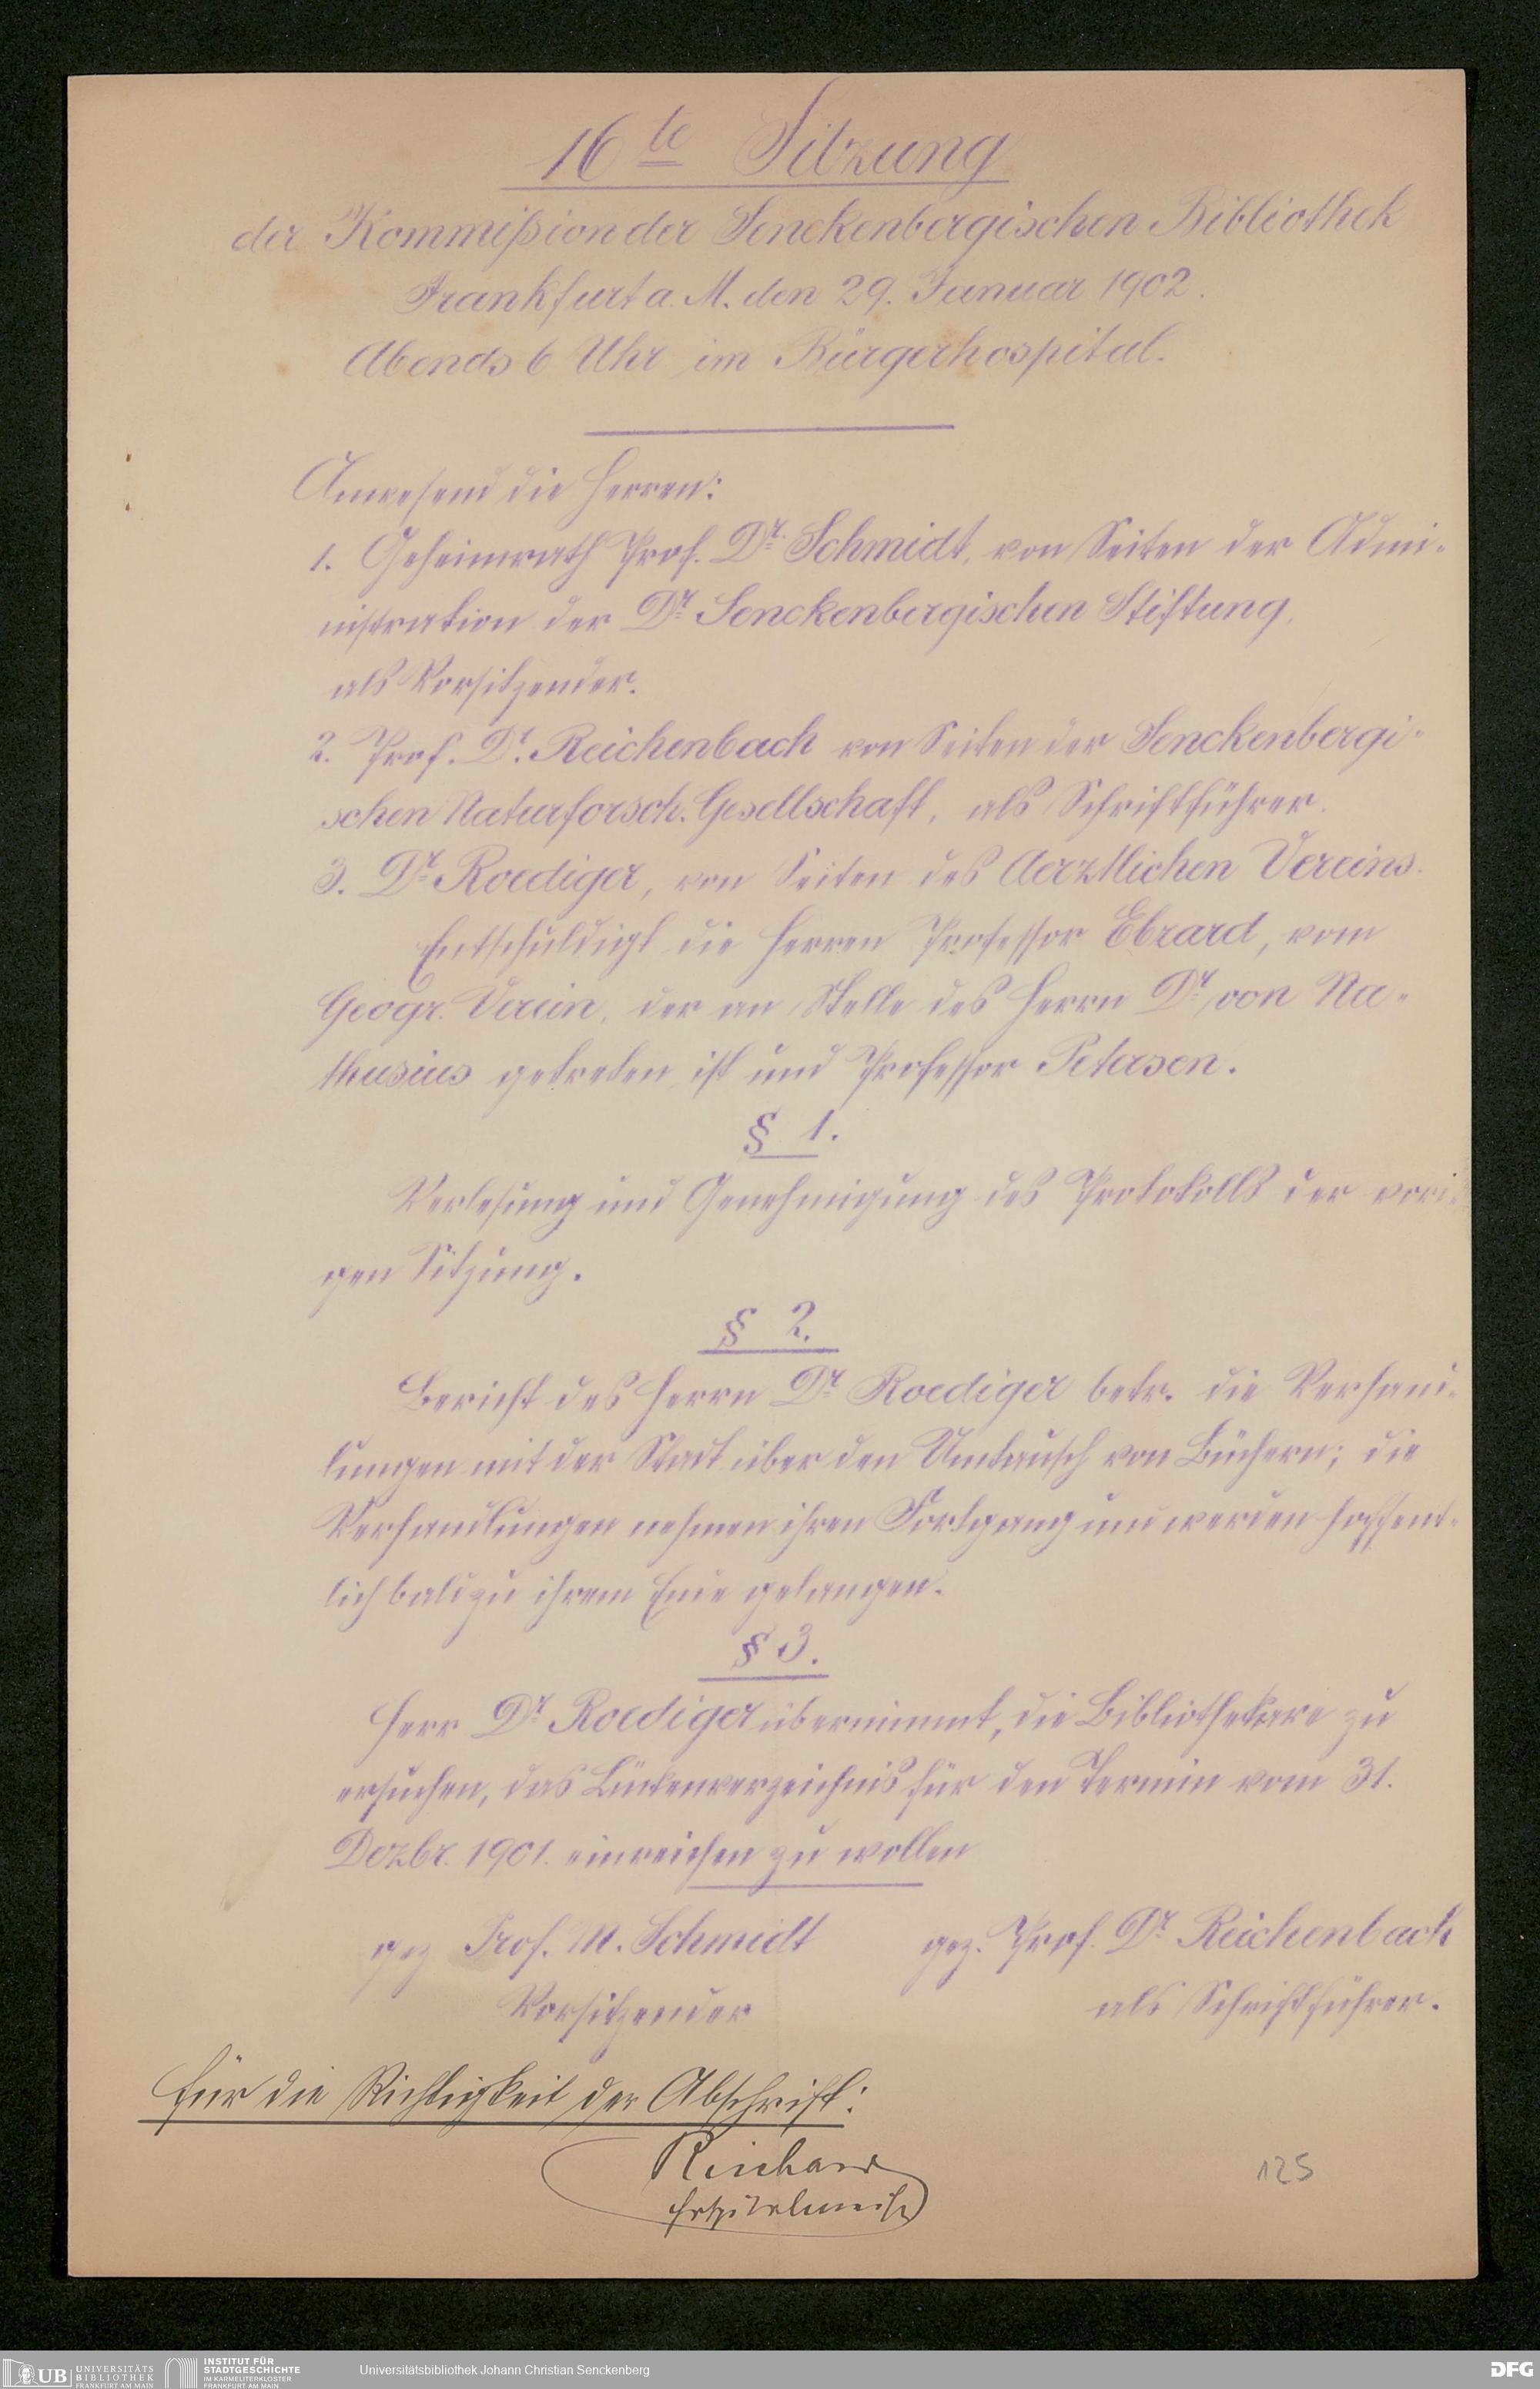 16te Sitzung
der Kommißion der Senckenbergischen Bibliothek
Frankfurt a. M. den 29. Januar 1902.
Abends 6 Uhr im Bürgerhospital.
Anwesend die Herren:
1. Geheimrath Prof. Dr. Schmidt, von Seiten der Admi-
nistration der Dr. Senckenbergischen Stiftung,
als Vorsitzender.
2. Prof. Dr. Reichenbach von Seiten der Senckenbergi-
schen Naturforsch. Gesellschaft, als Schriftführer.
3. Dr. Roediger, von Seiten des Aerztlichen Vereins.
Entschuldigt die Herren Professor Ebrard, vom
Geogr. Verein, der an Stelle des Herrn Dr. von Na-
thusius getreten ist und Professor Petersen.
§ 1.
Verlesung und Genehmigung des Protokolls der vori-
gen Sitzung.
§ 2.
Bericht des Herrn Dr. Roediger betr. die Verhand-
lungen mit der Stadt über den Umtausch von Büchern; die
Verhandlungen nehmen ihren Fortgang und werden hoffent-
lich bald zu ihrem Ende gelangen.
§ 3.
Herr Dr. Roediger übernimmt, die Bibliothekare zu
ersuchen, das Lückenverzeichnis für den Termin vom 31.
Dezbr. 1901. einreichen zu wollen
gez Prof. M. Schmidt gez. Prof. Dr. Reichenbach
Vorsitzender als Schriftführer.
Für die Richtigkeit der Abschrift:
Reichard
125
UB UNIVERSITÄTS
BIBLIOTHEK
FRANKFURT AM MAIN
INSTITUT FÜR
STADTGESCHICHTE
IM KARMELITERKLOSTER
FRANKFURT AM MAIN
Universitätsbibliothek Johann Christian Senckenberg
DFG